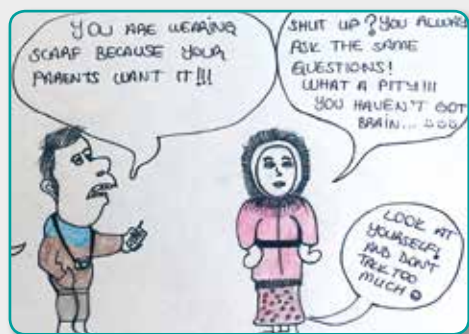 YOU ARE WEARING
SCARF BECAUSE YOUR
PARENTS WANT IT!!!
SHUT UP? YOU ALWAY
ASK THE SAME
QUESTIONS!
WHAT A PITY!!!
YOU HAVEN'T GOT
BRAIN...
LOOK AT
YOURSELF!
AND DON'T
TALK TOO
MUCH